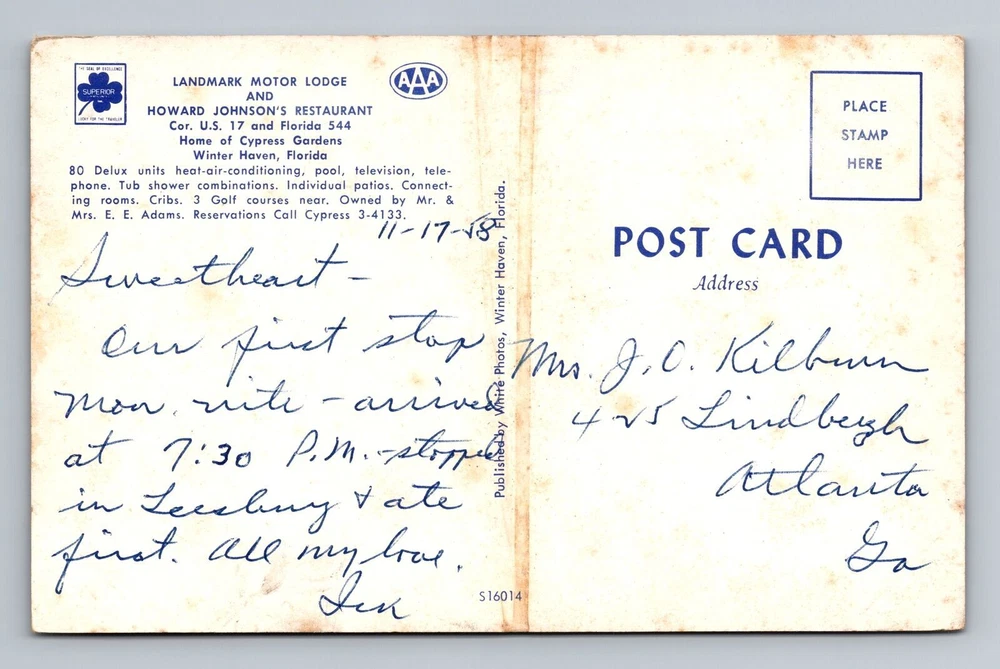 THE SEAL OF EXCELLENCE
SUPERIOR
LOOK FOR THE TRAVELER
LANDMARK MOTOR LODGE
AND
HOWARD JOHNSON'S RESTAURANT
Cor. U.S. 17 and Florida 544
Home of Cypress Gardens
Winter Haven, Florida
AAA
80 Delux units heat-air-conditioning, pool, television, tele-
phone. Tub shower combinations. Individual patios. Connect-
ing rooms. Cribs. 3 Golf courses near. Owned by Mr. &
Mrs. E. E. Adams. Reservations Call Cypress 3-4133.
11-17-58
Sweetheart -
Our first stop
Mon. nite - arrived
at 7:30 P.M. - stopped
in Leesburg & ate
first. All my love.
Published by White Photos, Winter Haven, Florida.
S16014
PLACE
STAMP
HERE
POST CARD
Address
Mrs. J. O. Kilburn
425 Lindbergh
Atlanta
Ga